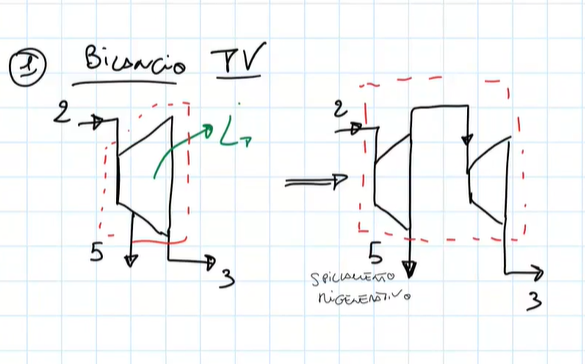 1 Bilancio TV
2 L̇T 2
5 3 5
SPILLAMENTO
RIGENERATIVO
3